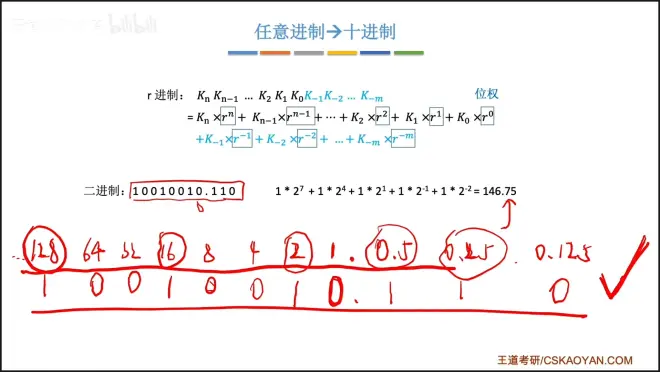 bilibili
任意进制→十进制
r 进制： Kn Kn−1 … K2 K1 K0K−1K−2 … K−m
位权
= Kn ×r^n + Kn−1×r^n−1 + ⋯ + K2 ×r^2 + K1 ×r^1 + K0 ×r^0
+K−1×r^−1 + K−2 ×r^−2 + …+ K−m×r^−m
二进制：10010010.110 1 * 2^7 + 1 * 2^4 + 1 * 2^1 + 1 * 2^-1 + 1 * 2^-2 = 146.75
…128 64 32 16 8 4 2 1 . 0.5 0.25 0.125
1 0 0 1 0 0 1 0 . 1 1 0
王道考研/CSKAOYAN.COM